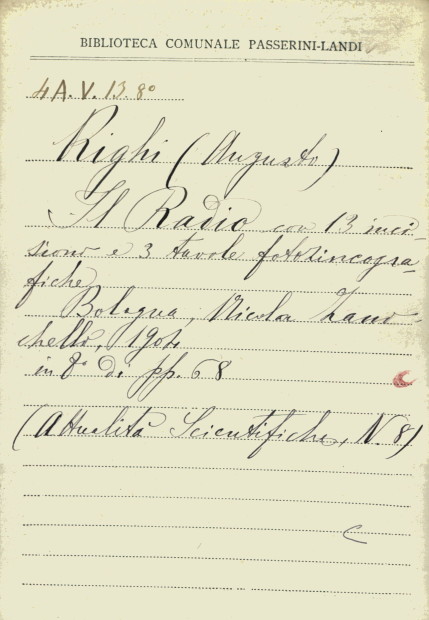 BIBLIOTECA COMUNALE PASSERINI-LANDI
4 A. V. 13. 8º
Righi (Augusto)
Il Radio con 13 inci-
sioni e 3 tavole fotozincogra-
fiche
Bologna, Nicola Zani-
chelli, 1904
in 8º di pp. 68
(Attualità Scientifiche, N. 8)